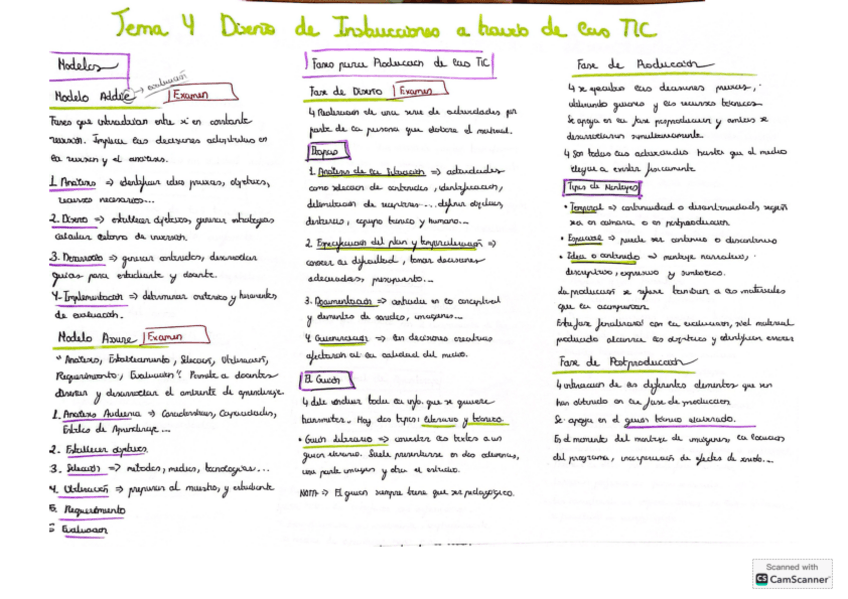 Tema 4 Diseño de Instrucciones a través de las TIC
Modelos
Modelo Addie → evaluación Examen
Fases que interactúan entre sí en constante
revisión. Implica las decisiones adoptadas en
la revisión y el análisis.
1. Análisis => identificar ideas previas, objetivos,
recursos necesarios...
2. Diseño => establecer objetivos, generar estrategias
calcular retorno de inversión.
3. Desarrollo => generar contenidos, desarrollar
guías para estudiante y docente.
4. Implementación => determinar criterios y herramientas
de evaluación.
Modelo Assure Examen
"Análisis, Establecimiento, Selección, Utilización,
Requerimiento, Evaluación". Permite a docentes
diseñar y desarrollar el ambiente de aprendizaje
1. Análisis Audiencia => Características, Capacidades,
Estilos de Aprendizaje...
2. Establecer objetivos.
3. Selección => métodos, medios, tecnologías...
4. Utilización => preparar al maestro, y estudiante
5. Requerimiento
Evaluación
Fases para Producción de las TIC
Fase de Diseño Examen
Realización de una serie de actividades por
parte de la persona que elabora el material.
1. Análisis de la Situación => actividades
como selección de contenidos, identificación,
delimitación de receptores... definir objetivos,
destinatarios, equipo técnico y humano...
2. Especificación del plan y temporalización =>
conocer la dificultad, tomar decisiones
adecuadas, presupuesto...
3. Documentación => centrada en lo conceptual
y elementos de sonidos, imágenes...
4. Guionización => las decisiones creativas
afectarán a la calidad del medio.
El Guión
debe contener toda la info. que se quiere
transmitir. Hay dos tipos: literario y técnico
• Guión literario => convertir los textos a un
guion literario. Suele presentarse en dos columnas,
una parte imagen y otra el sonido.
NOTA => El guion siempre tiene que ser pedagógico.
Fase de Producción
se ejecutan las decisiones previas,
utilizando guiones y los recursos técnicos.
Se apoya en la fase preproducción y ambas se
desarrollan simultáneamente.
Son todas las actividades hasta que el medio
llegue a existir físicamente
Tipos de Montajes
• Temporal => continuidad o discontinuidad según
sea en cámara o en postproducción
• Espacial => puede ser continuo o discontinuo
• Idea o contenido => montaje narrativo,
descriptivo, expresivo y simbólico.
La producción se refiere también a los materiales
que la acompañan.
Esta fase finalizará con la evaluación, si el material
producido alcanza los objetivos y identifican errores
Fase de Postproducción
utilización de los diferentes elementos que se
han obtenido en la fase de producción
Se apoya en el guion técnico elaborado.
Es el momento del montaje de imágenes, la locución
del programa, incorporación de efectos de sonido...
Scanned with
CS CamScanner